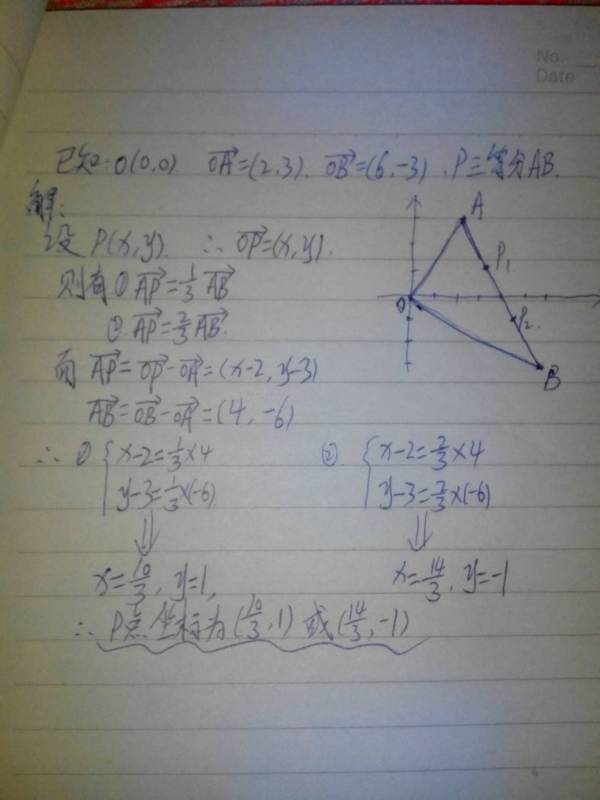 No.
Date
已知:O(0,0) OA→=(2,3), OB→=(6,-3), P三等分AB.
解:
设P(x,y) ∴OP→=(x,y).
则有①AP→=1/3 AB→
②.AP→=2/3 AB→.
而 AP→=OP→-OA→=(x-2,y-3)
AB→=OB→-OA→=(4,-6)
∴ ① { x-2=1/3×4
y-3=1/3×(-6)
⇓
x=10/3, y=1,
② { x-2=2/3×4
y-3=2/3×(-6)
⇓
x=14/3, y=-1
∴ P点坐标为(10/3,1)或(14/3,-1)
A
P1
O
P2
B